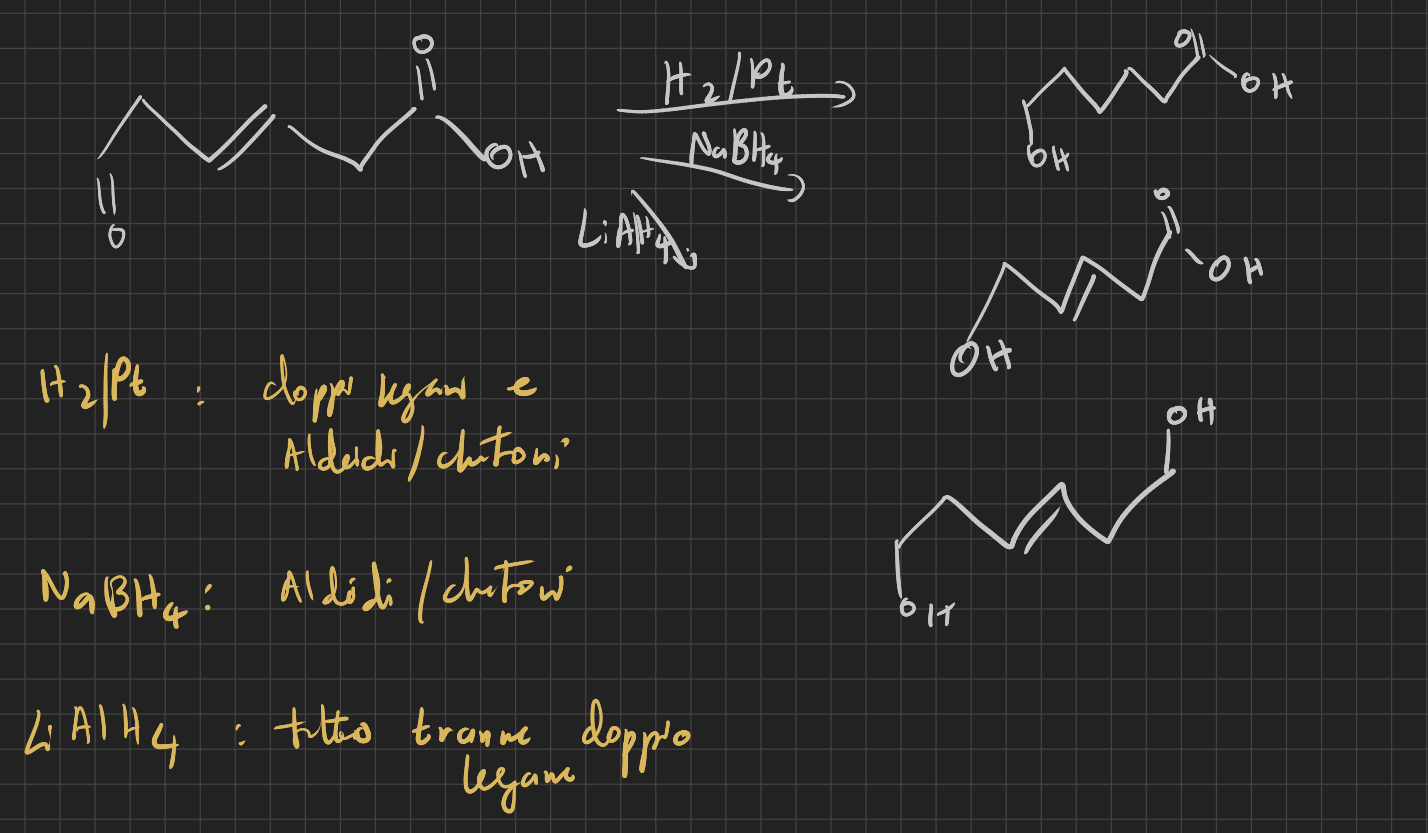 O
OH
O
H2/Pt
NaBH4
LiAlH4
O
OH
OH
O
OH
OH
OH
OH
H2/Pt : doppi legami e
Aldeidi/chetoni
NaBH4 : Aldeidi/chetoni
LiAlH4 : tutto tranne doppio
legame